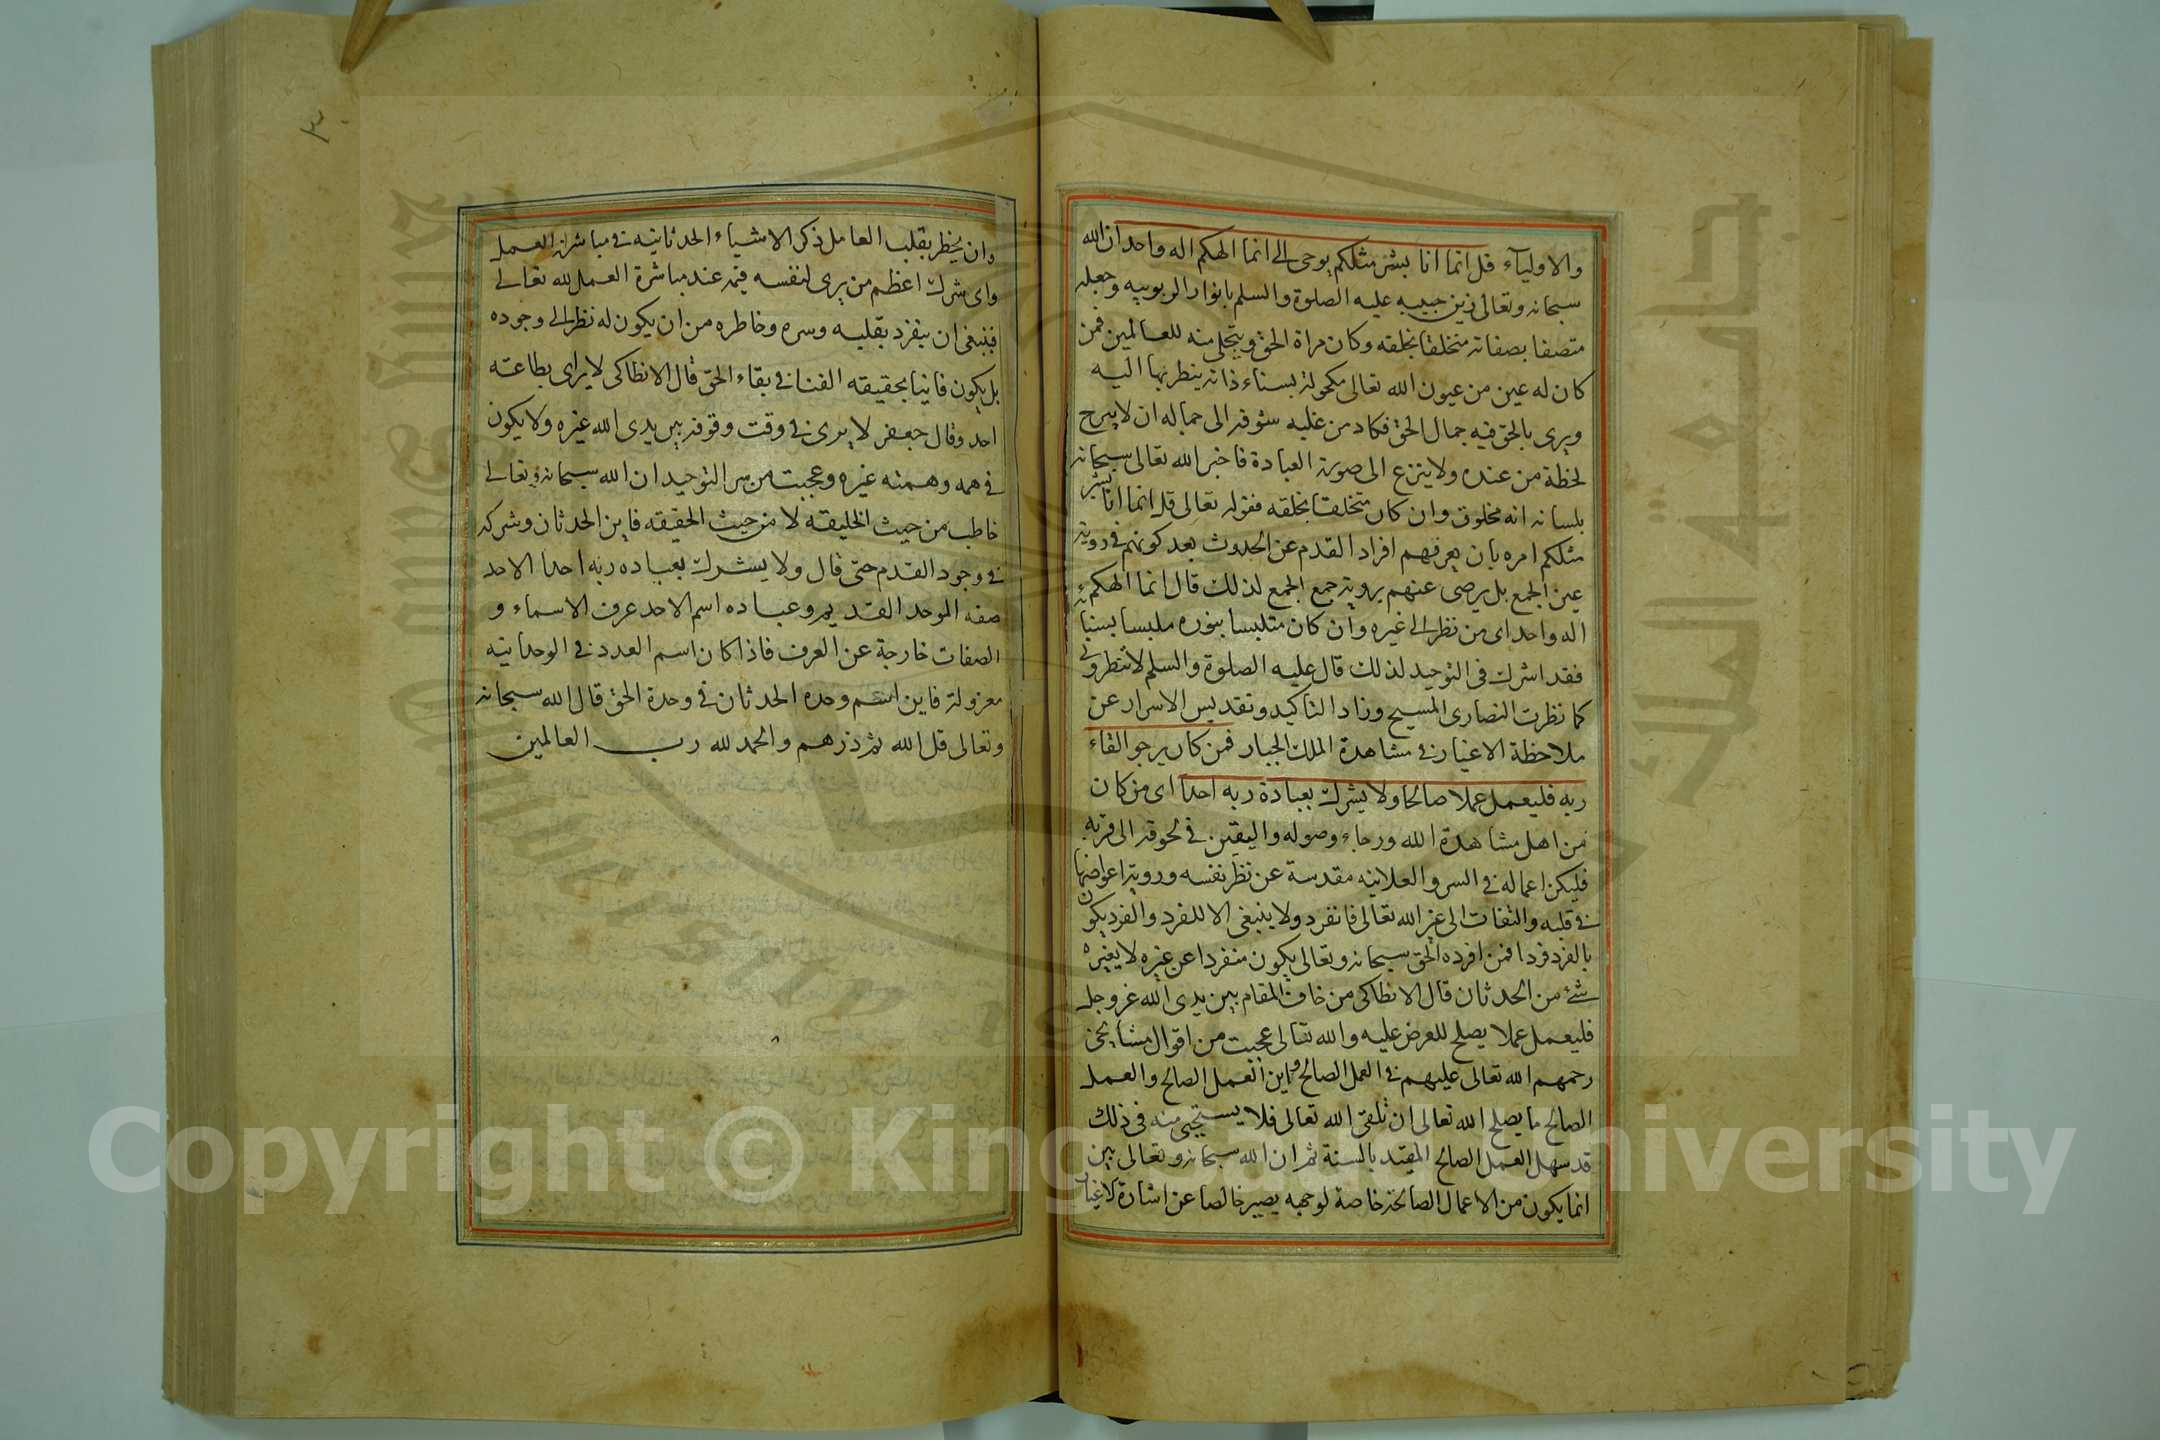 والاولياء قل انما انا بشر مثلكم يوحى الى انما الهكم اله واحد ان الله
سبحانه وتعالى زين حبيبه عليه الصلوة والسلم بانوار الربوبيه وجعله
متصفا بصفاته متخلقا بخلقه وكان مراة الحق ويتجلى منه للعالمين فمن
كان له عين من عيون الله تعالى مكحولة بسناء ذاته ينظر بها اليه
ويرى بالحق فيه جمال الحق فكاد من غلبه شوقه الى جماله ان لا يبرح
لحظة من عنده ولا ينزع الى صورة العبادة فاخبر الله تعالى سبحانه
بلسانه انه مخلوق وان كان متخلقا بخلقه فقوله تعالى قل انما انا بشر
مثلكم امره بان يعرفهم افراد القدم عن الحدوث بعد كونهم في روية
عين الجمع بل يرضى عنهم بروية جمع الجمع لذلك قال انما الهكم
اله واحد اى من نظر الى غيره وان كان متلبسا بنوره ملبسا بسنائه
فقد اشرك فى التوحيد لذلك قال عليه الصلوة والسلم لا تنظروني
كما نظرت النصارى المسيح وزاد التاكيد وتقديس الاسرار عن
ملاحظة الاغيار في مشاهدة الملك الجبار فمن كان يرجو القاء
ربه فليعمل عملا صالحا ولا يشرك بعبادة ربه احدا اى من كان
من اهل مشاهدة الله ورجاء وصوله واليقين في لحوقه الى قربه
فليكن اعماله في السر والعلانيه مقدسة عن نظر نفسه وروية اعواضها
في قلبه والتفات الى غير الله تعالى فانفرد ولا ينبغى الا للفرد والفرد يكون
بالفرد فردا فمن افرده الحق سبحانه وتعالى يكون منفردا عن غيره لا يغيره
شئ من الحدثان قال الانطاكى من خاف المقام بين يدى الله عزوجل
فليعمل عملا يصلح للعرض عليه والله تعالى عجبت من اقوال مشايخى
رحمهم الله تعالى عليهم في العمل الصالح واين العمل الصالح والعمل
الصالح ما يصلح الله تعالى ان تلقى الله تعالى فلا يستحيى منه فى ذلك
قد سهل العمل الصالح المقتد بالسنة ثم ان الله سبحانه وتعالى بين
انما يكون من الاعمال الصالحة خاصة لوجهه يصير خالصا عن اشارة لاغيار
وان يخطر بقلب العامل ذكر الاشياء الحدثانية في مباشرة العمل
واى شرك اعظم من يرى لنفسه قيمة عند مباشرة العمل لله تعالى
فينبغى ان ينفرد بقلبه وسره وخاطره من ان يكون له نظر الى وجوده
بل يكون فانيا بحقيقه الفنا في بقاء الحق قال الانطاكى لا يراى بطاعته
احد وقال جعفر لا يرى في وقت وقوفه بين يدى الله غيره ولا يكون
في همه وهمته غيره وعجبت من سر التوحيد ان الله سبحانه وتعالى
خاطب من حيث الخليقه لا من حيث الحقيقه فاين الحدثان وشركه
في وجود القدم حتى قال ولا يشرك بعباده ربه احدا الاحد
صفه الموحد القديم وعباده اسم الاحد عرف الاسماء و
الصفات خارجة عن العرف فاذا كان اسم العدد في الوحدانيه
معزولة فاين اسم وحده الحدثان في وحدة الحق قال الله سبحانه
وتعالى قل الله ثم ذرهم والحمد لله رب العالمين
Copyright © King Saud University